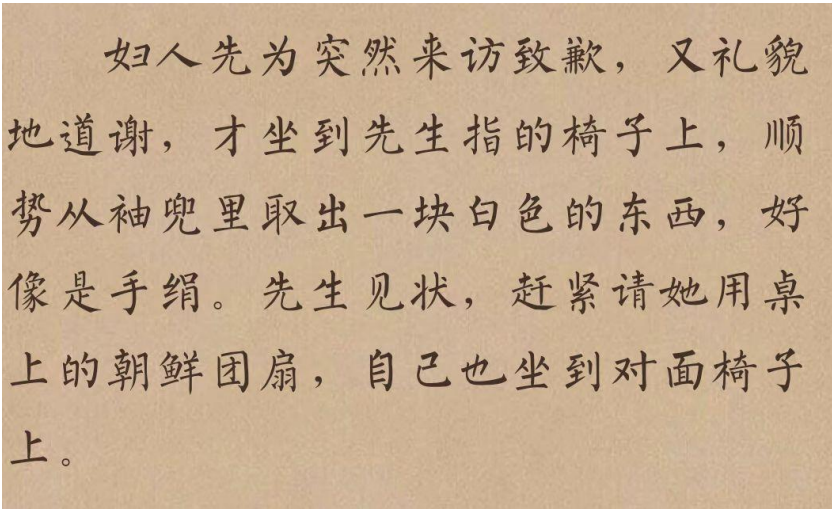 妇人先为突然来访致歉，又礼貌
地道谢，才坐到先生指的椅子上，顺
势从袖兜里取出一块白色的东西，好
像是手绢。先生见状，赶紧请她用桌
上的朝鲜团扇，自己也坐到对面椅子
上。